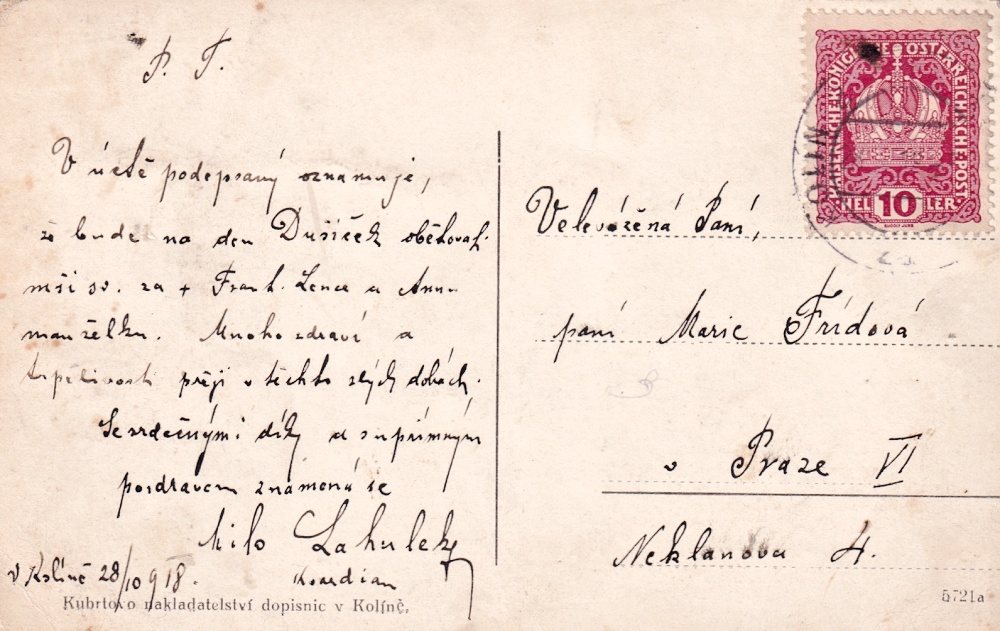 P. T.
V úctě podepsaný oznamuje,
že bude na den Dušiček obětovat
mši sv. za + Frant. Lence a Annu
manželku. Mnoho zdraví a
trpělivosti přeji v těchto zlých dobách.
Se srdečnými díky a s upřímným
pozdravem znamená se
Milo
Kvardian
v Kolíně 28/10 918.
Kubrtovo nakladatelství dopisnic v Kolíně.
KAISERLICHE KÖNIGLICHE ÖSTERREICHISCHE POST
HEL 10 LER
Velevážená Paní,
paní Marie Frídová
v Praze VI
Neklanova 4.
5721a